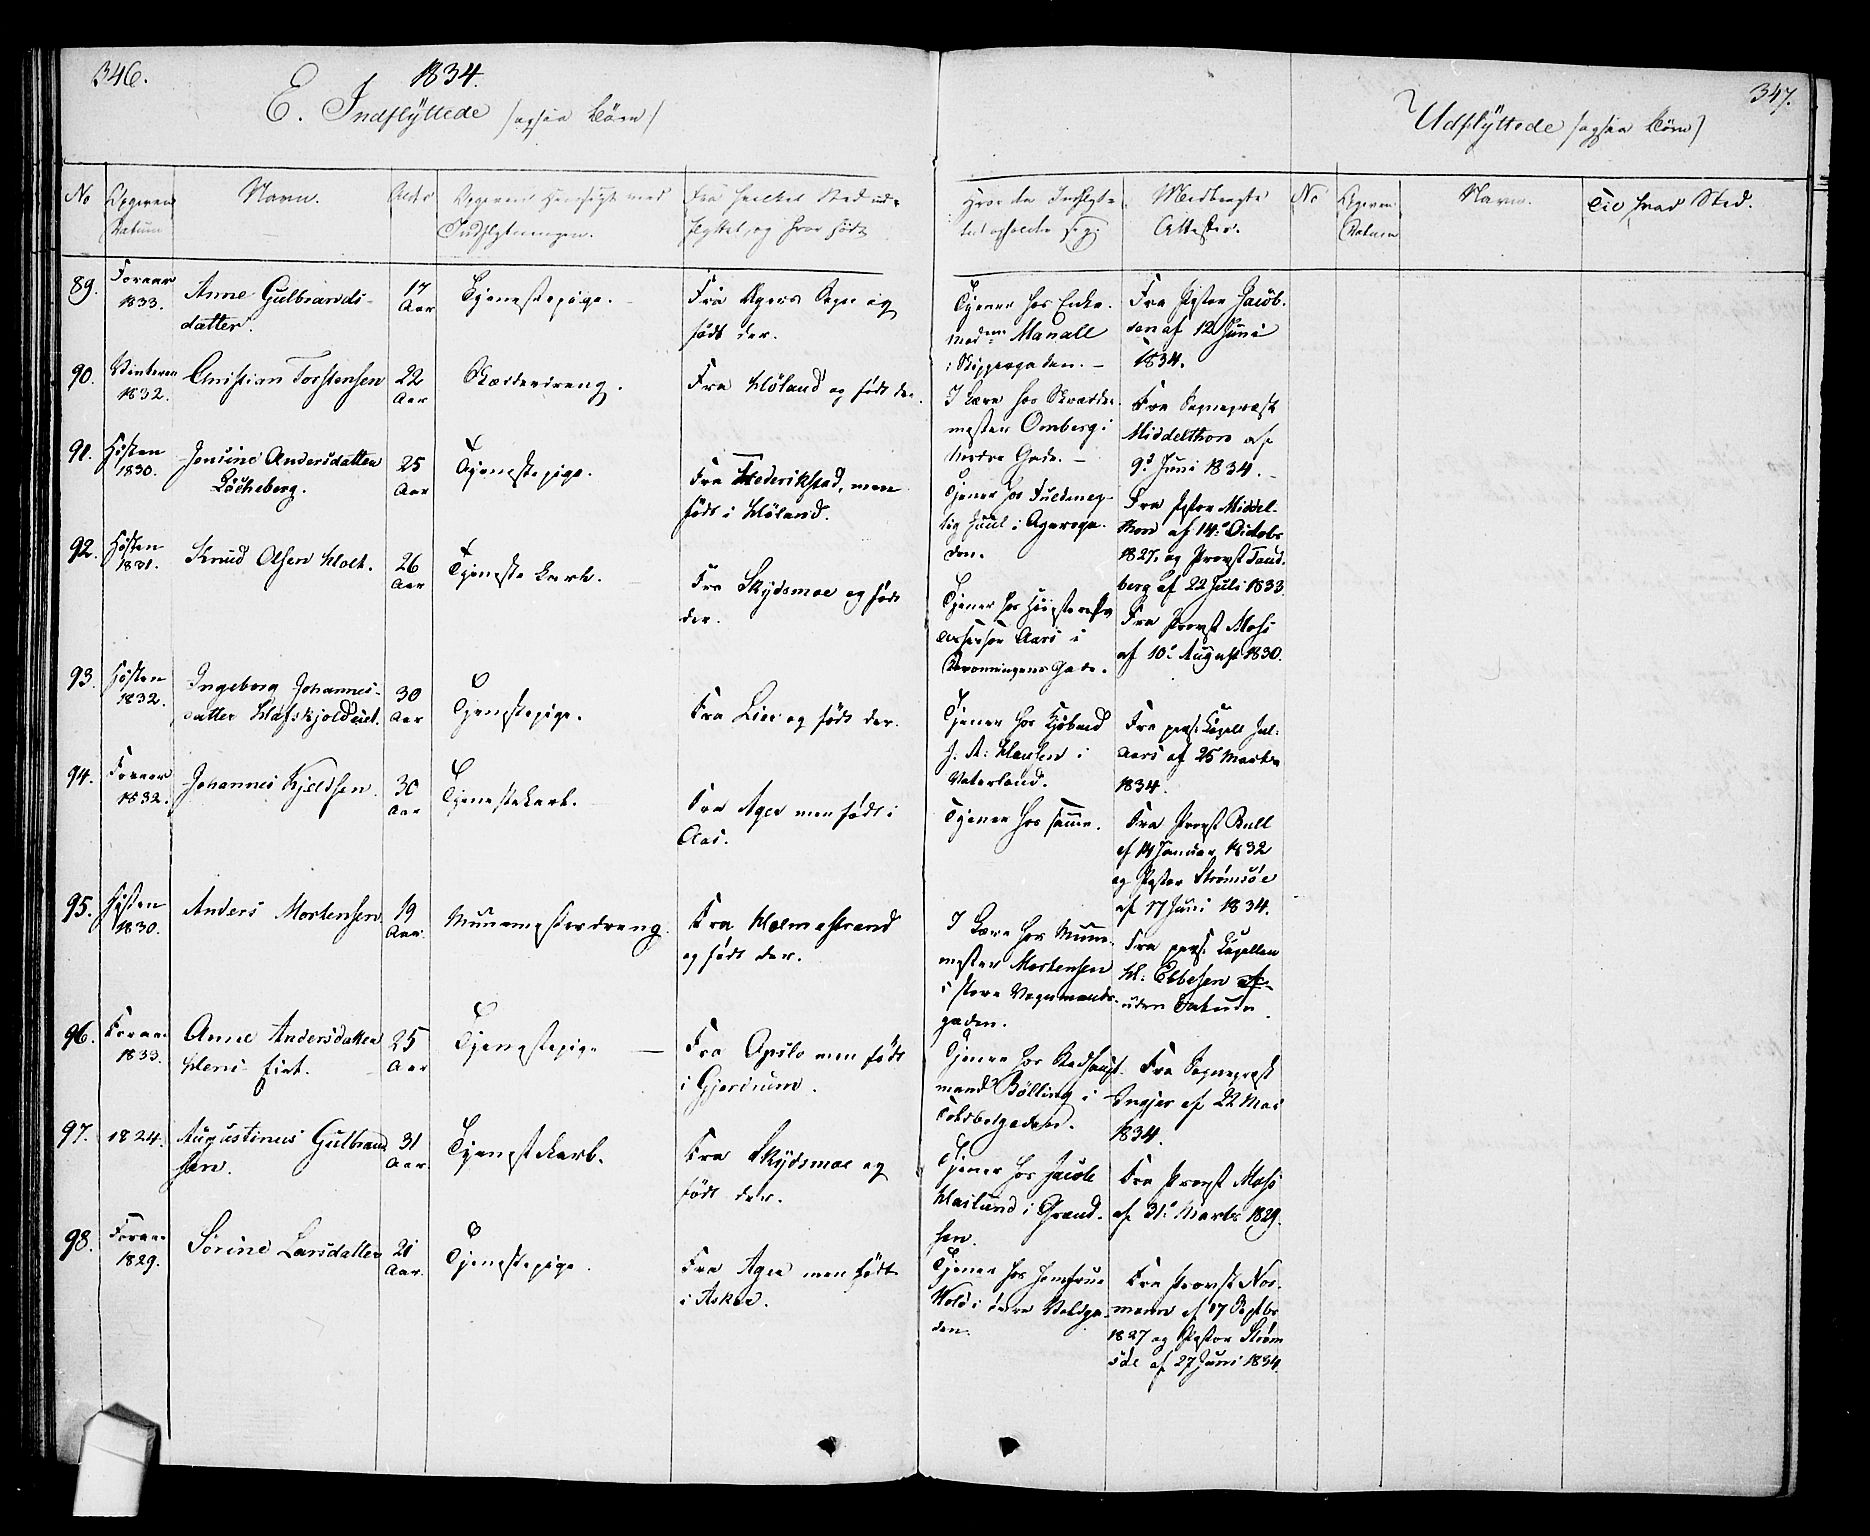 346.
1834.
E. Indflÿttede /ogsaa Börn/
No
Opgiven Datum
Navn.
Alder
Opgiven Hensigt med Indflytningen.
Fra hvilket Sted udflyttet, og hvor född
Hvor den Indflyttede opholder sig.
Medbragte Attester.
89.
Foraar 1833.
Anne Gulbrands-
datter.
17 Aar
Tjenestepige.
Fra Agers Sogn og
född der.
Tjener hos Enke-
mad&ttem Manall
i Skippergaden. –
Fra Pastor Jacob-
sen af 12 Juni
1834.
90.
Vinteren 1832.
Christian Torstensen
22 Aar
Skrædderdreng.
Fra Höland og född der.
I Lære hos Skrædder-
mester Omberg i
nedre Gade. –
Fra Sognepræst
Middelthon af
9d Juni 1834.
91.
Hösten 1830.
Jensine Andersdatter
Löcheberg.
25 Aar
Tjenestepige.
Fra Frederikstad, men
född i Höland.
Tjener hos Fuldmæg-
tig Juul i Agersga-
den.
Fra Pastor Middel-
thon af 14d Octobr
1827. og Provst Tand-
berg af 22 Juli 1833.
92.
Hösten 1831.
Knud Olsen Holt.
26 Aar
Tjenestekarl.
Fra Skydsmoe og född
der.
Tjener hos Höiesterets
Assessor Aars i
Dronningens Gade.
Fra Provst Mohs
af 10d August 1830.
93.
Hösten 1832.
Ingeborg Johannes-
datter Hafskjoldeiet.
30 Aar
Tjenestepige.
Fra Lier og född der.
Tjener hos Kjöbmd
J. A: Hansen i
Vaterland.
Fra pers: Capell Jul:
Aars af 25 Marts
1834.
94.
Foraar 1832.
Johannes Kjeldsen.
30 Aar
Tjenestekarl.
Fra Ager men född i
Aas.
Tjener hos samme.
Fra Provst Bull
af 14 Januar 1832
og Pastor Strømsöe
af 17 Juni 1834.
95.
Hösten 1830.
Anders Mortensen
19 Aar.
Muurmesterdreng.
Fra Holmestrand
og född der.
I Lære hos Muur-
mester Mortensen
i store Vognmands-
gaden.
Fra pers: Capellan
H: Ebbesen af
uden Datum.
96.
Foraar 1833.
Anne Andersdatter
Hens-Eiet.
25 Aar
Tjenestepige –
Fra Opslo men född
i Gjerdrum.
Tjener hos Stadhaupt-
mand Bölling i
Toldbodgaden.
Fra Sognepræst
Dneyer af 22 Mai
1834.
97.
1824.
Augustinus Gulbrand-
sen.
31 Aar.
Tjenestekarl.
Fra Skydsmoe og
född der.
Tjener hos Jacob
Haslund i Grænd-
sen.
Fra Provst Mohs
af 31d Marts 1829.
98.
Foraar 1829.
Sörine Larsdatter
21 Aar.
Tjenestepige.
Fra Ager men född
i Asker.
Tjener hos Jomfrue
Wold i övre Voldga-
den.
Fra Provst Nor-
mann af 17 Septbr
1827 og Pastor Strøm
söe af 27 Juni 1834.
347.
Udflÿttede /ogsaa Börn/
No
Opgiven Datum
Navn.
Til hvad Sted.